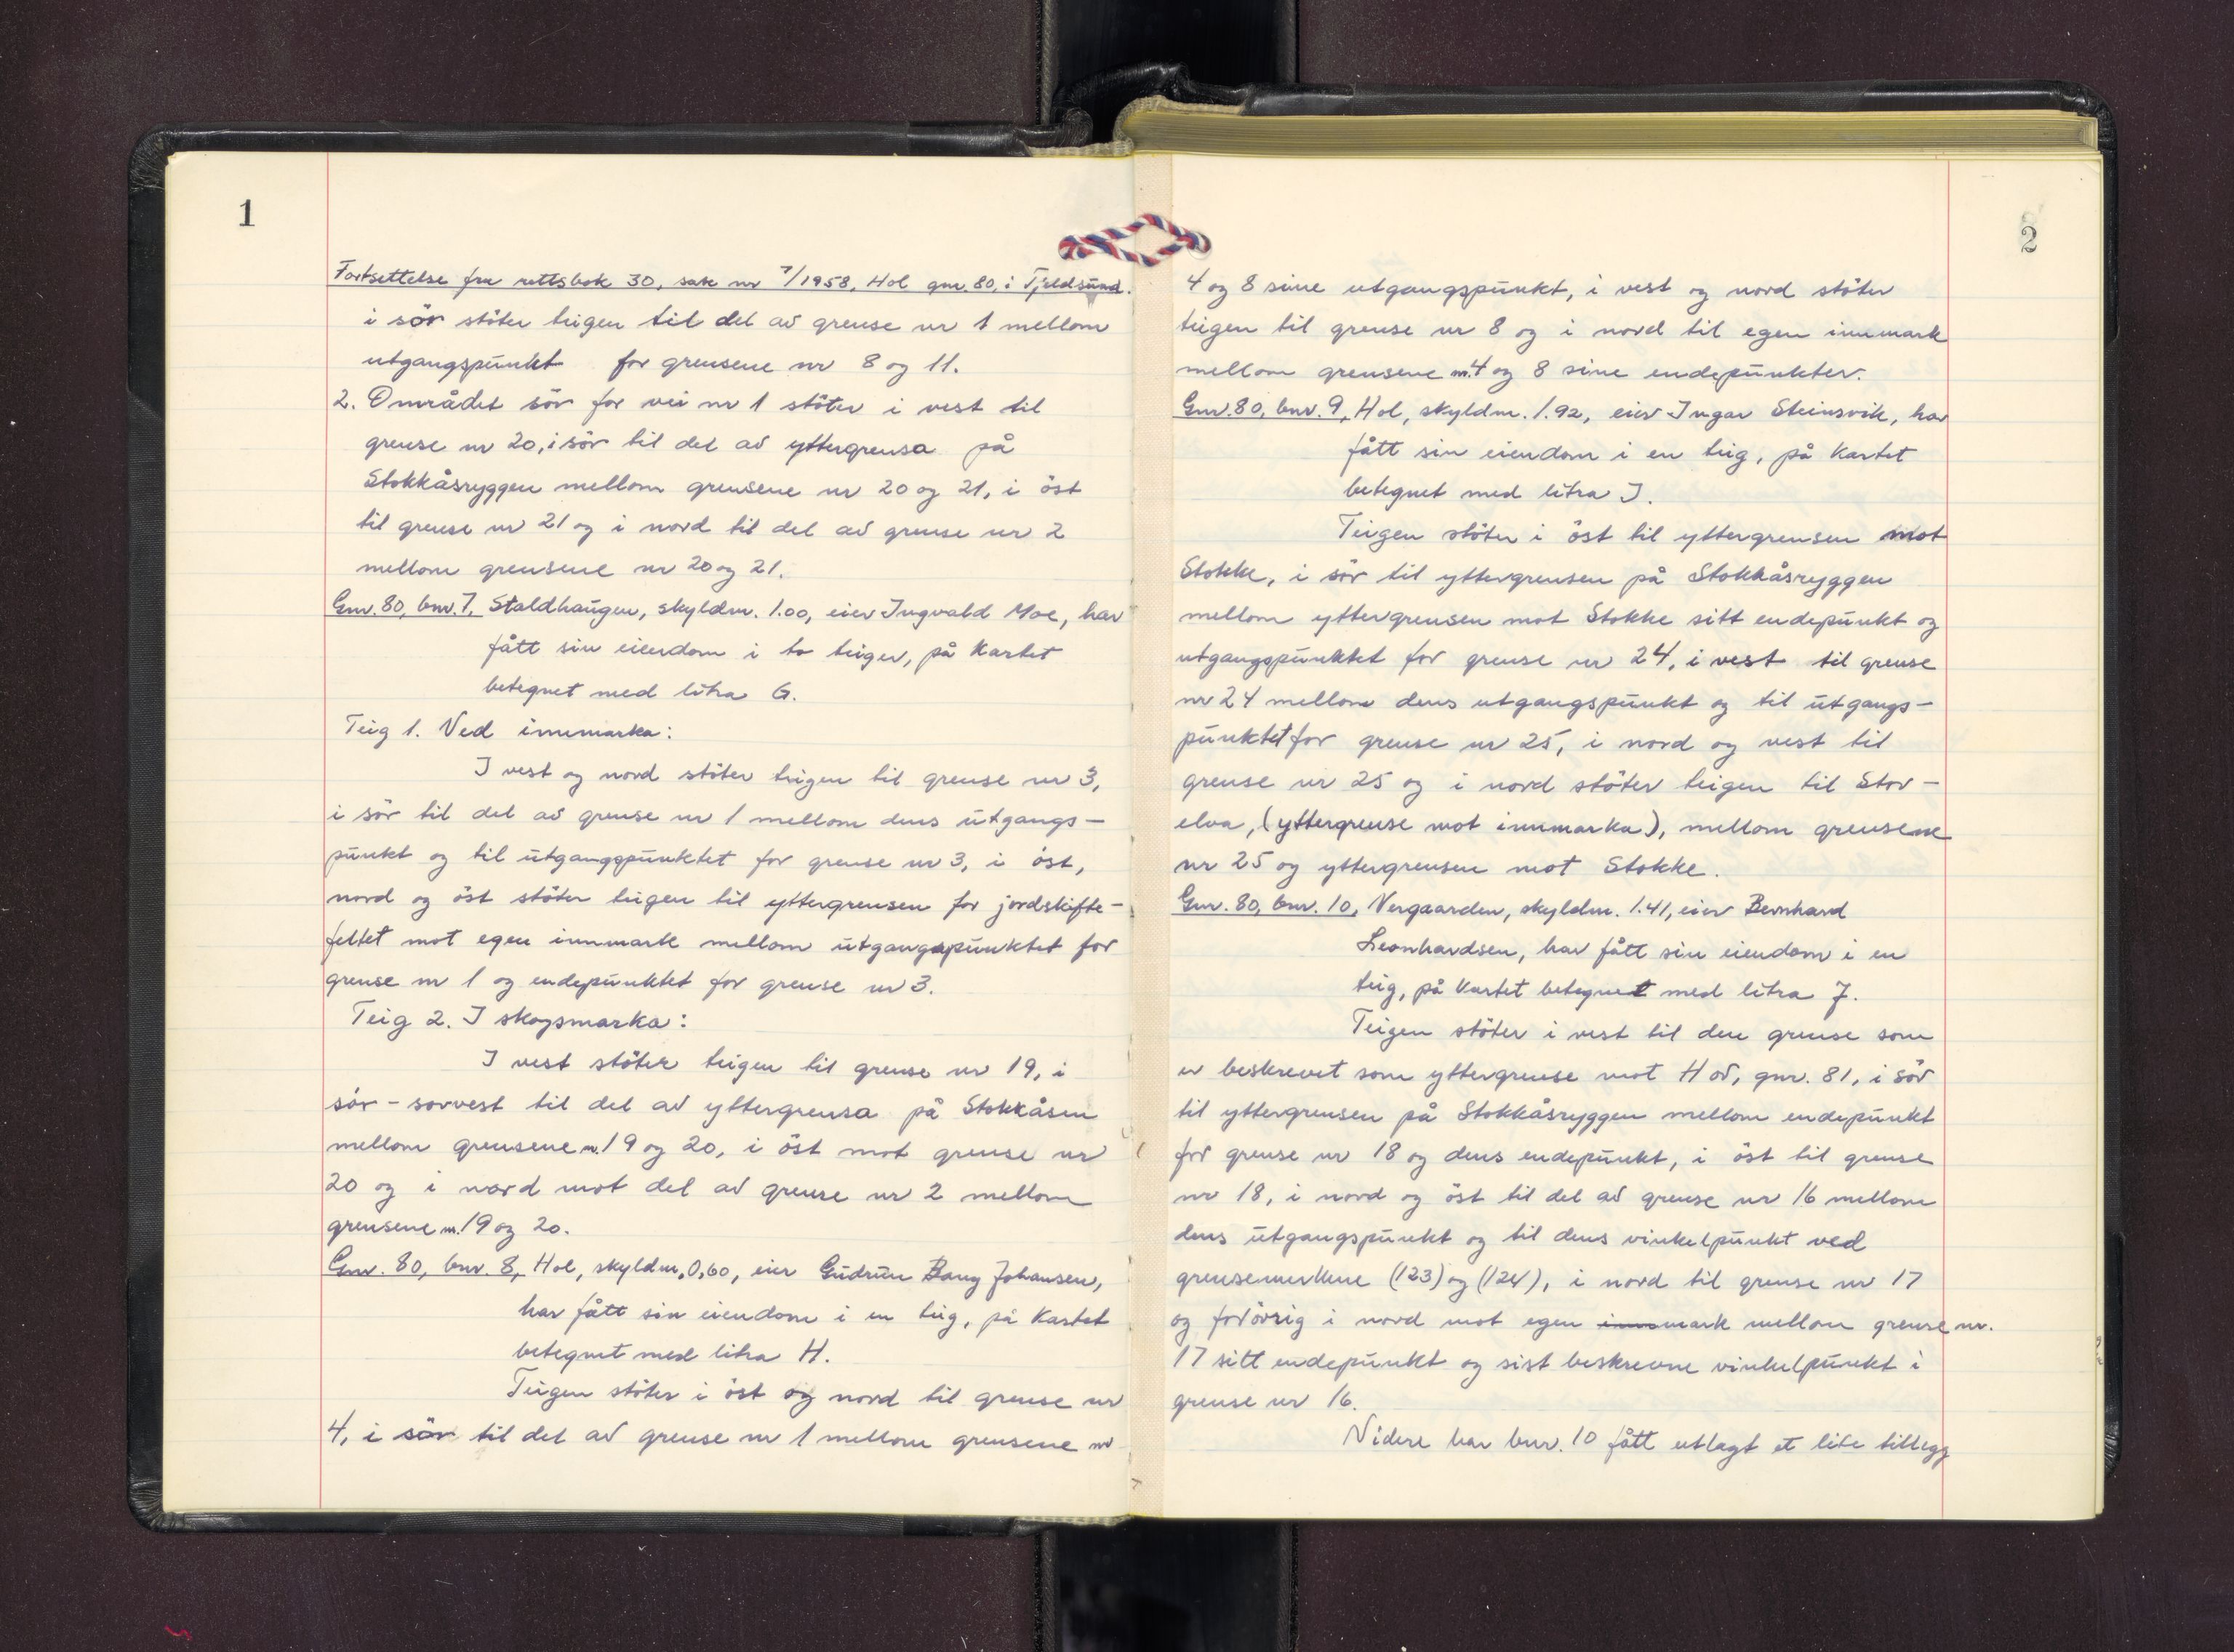 1
Fortsettelse fra rettsbok 30, sak nr 7/1958, Hol gnr. 80, i Tjeldsund.
i sör stöter teigen til del av grense nr 1 mellom
utgangspunkt for grensene nr 8 og 11.
2. Området sör for vei nr 1 stöter i vest til
grense nr 20, i sör til del av yttergrensa på
Stokkåsryggen mellom grensene nr 20 og 21, i öst
til grense nr 21 og i nord til del av grense nr 2
mellom grensene nr 20 og 21.
Gnr. 80, bnr. 7, Staldhaugen, skyldm. 1.00, eier Ingvald Moe, har
fått sin eiendom i to teiger, på kartet
betegnet med litra G.
Teig 1. Ved innmarka:
I vest og nord stöter teigen til grense nr 3,
i sör til del av grense nr 1 mellom dens utgangs-
punkt og til utgangspunktet for grense nr 3, i öst,
nord og öst stöter teigen til yttergrensen for jordskifte-
feltet mot egen innmark mellom utgangspunktet for
grense nr 1 og endepunktet for grense nr 3.
Teig 2. I skogsmarka:
I vest stöter teigen til grense nr 19, i
sör - sorvest til del av yttergrensa på Stokkåsen
mellom grensene nr. 19 og 20, i öst mot grense nr
20 og i nord mot del av grense nr 2 mellom
grensene nr. 19 og 20.
Gnr. 80, bnr. 8, Hol, skyldm. 0,60, eier Gudrun Bang Johansen,
har fått sin eiendom i en teig, på kartet
betegnet med litra H.
Teigen stöter i öst og nord til grense nr
4, i sör til del av grense nr 1 mellom grensene nr
2
4 og 8 sine utgangspunkt, i vest og nord stöter
teigen til grense nr 8 og i nord til egen innmark
mellom grensene nr. 4 og 8 sine endepunkter.
Gnr. 80, bnr. 9, Hol, skyldm. 1.92, eier Ingar Steinsvik, har
fått sin eiendom i en teig, på kartet
betegnet med litra I.
Teigen stöter i öst til yttergrensen mot
Stokke, i sör til yttergrensen på Stokkåsryggen
mellom yttergrensen mot Stokke sitt endepunkt og
utgangspunktet for grense nr 24, i vest til grense
nr 24 mellom dens utgangspunkt og til utgangs-
punktet for grense nr 25, i nord og vest til
grense nr 25 og i nord stöter teigen til Stor-
elva, (yttergrense mot innmarka), mellom grensene
nr 25 og yttergrensen mot Stokke.
Gnr. 80, bnr. 10, Nergaarden, skyldm. 1.41, eier Bernhard
Leonhardsen, har fått sin eiendom i en
teig, på kartet betegnet med litra J.
Teigen stöter i vest til den grense som
er beskrevet som yttergrense mot Hov, gnr. 81, i sör
til yttergrensen på Stokkåsryggen mellom endepunkt
for grense nr 18 og dens endepunkt, i öst til grense
nr 18, i nord og öst til del av grense nr 16 mellom
dens utgangspunkt og til dens vinkelpunkt ved
grensemerkene (123) og (124), i nord til grense nr 17
og forövrig i nord mot egen innmark mellom grense nr.
17 sitt endepunkt og sist beskrevne vinkelpunkt i
grense nr 16.
Videre har bnr. 10 fått utlagt et lite tillegg